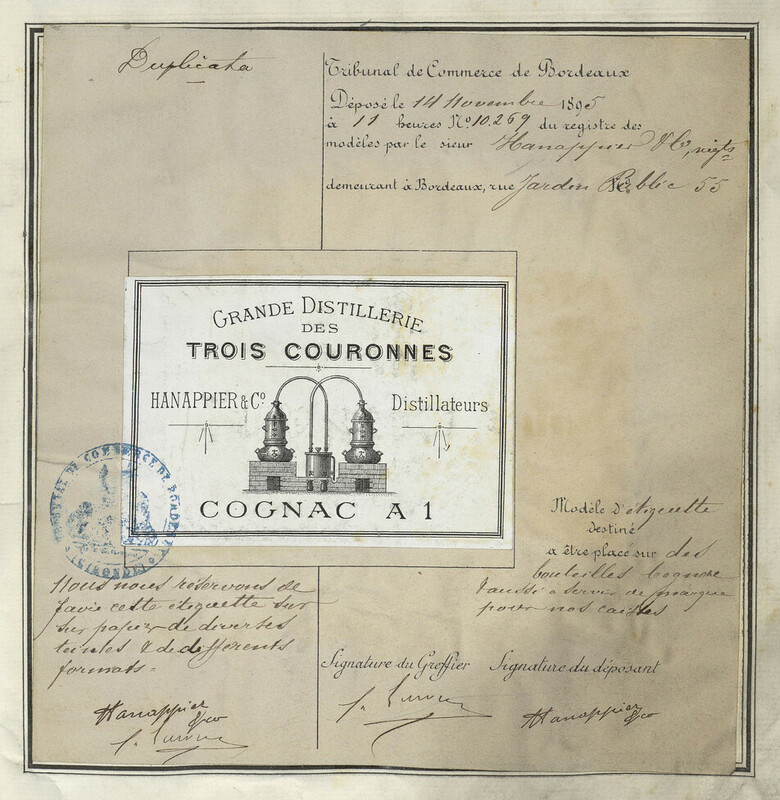 Duplicata
Tribunal de Commerce de Bordeaux
Déposé le 14 Novembre 1895
à 11 heures No. 10.269 du registre des
modèles par le sieur Hanappier & Co, négts
demeurant à Bordeaux, rue Jardin Public 55
GRANDE DISTILLERIE
DES
TROIS COURONNES
HANAPPIER & Co. Distillateurs
COGNAC A 1
TRIBUNAL DE COMMERCE DE BORDEAUX
(GIRONDE)
Modèle d'étiquette
destiné
a être placé sur des
bouteilles Cognac
& aussi a servir de marque
pour nos caisses
Nous nous réservons de
faire cette étiquette sur
sur papier de diverses
teintes & de differents
formats.
Signature du Greffier Signature du déposant
Hanappier & co
Hanappier & co